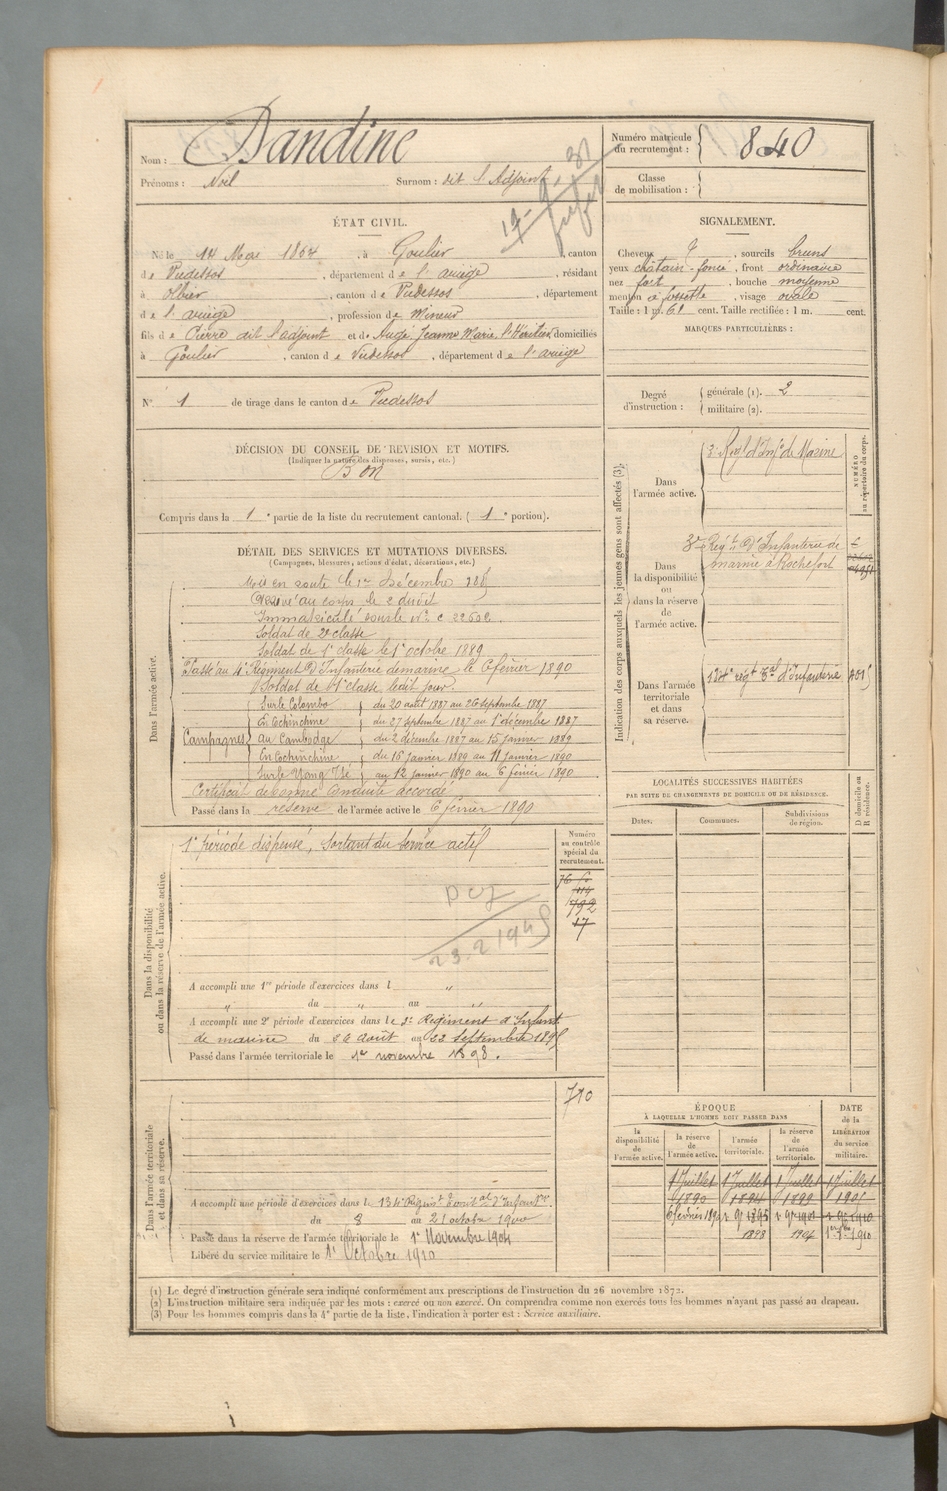 Nom : Dandine
Prénoms : Noël Surnom : dit l'Adjoint
Numéro matricule du recrutement : 840
Classe de mobilisation :
ÉTAT CIVIL.
Né le 14 Mai 1864, à Goulier, canton
de Vicdessos, département de l'ariège, résidant
à Olbier, canton de Vicdessos, département
de l'ariège, profession de Mineur
fils de Pierre dit l'adjoint et de Augé Jeanne Marie, l'Héritier, domiciliés
à Goulier, canton de Vicdessos, département de l'ariège
N° 1 de tirage dans le canton de Vicdessos
SIGNALEMENT.
Cheveux , sourcils bruns
yeux châtain-foncé, front ordinaire
nez fort, bouche moyenne
menton à fossette, visage ovale
Taille : 1 m. 61 cent. Taille rectifiée : 1 m. cent.
MARQUES PARTICULIÈRES :
Degré d'instruction : générale (1). 2
militaire (2).
DÉCISION DU CONSEIL DE REVISION ET MOTIFS.
(Indiquer la nature des dispenses, sursis, etc.)
Bon
Compris dans la 1e partie de la liste du recrutement cantonal. (1e portion).
DÉTAIL DES SERVICES ET MUTATIONS DIVERSES.
(Campagnes, blessures, actions d'éclat, décorations, etc.)
Dans l'armée active.
Mis en route le 1er Décembre 1885
Arrivé au corps le 2 dudit
Immatriculé sous le n°
Soldat de 2e classe
Soldat de 1e classe le 1er octobre 1889
Passé au 4e Régiment d'Infanterie de marine le 6 février 1890
Soldat de 1e classe ledit jour.
Campagnes
Sur le Colombo du 20 août 1887 au 26 septembre 1887
En Cochinchine du 27 septembre 1887 au 1er décembre 1887
Au Cambodge du 2 décembre 1887 au 15 janvier 1889
En Cochinchine du 16 janvier 1889 au 11 janvier 1890
Sur le Yang Tsé au 12 janvier 1890 au 6 février 1890
Certificat de bonne Conduite accordé
Passé dans la réserve de l'armée active le 6 février 1890
Indication des corps auxquels les jeunes gens sont affectés (3).
NUMÉRO au répertoire du corps.
Dans l'armée active.
3e Regt d'Infie de Marine
Dans la disponibilité ou dans la réserve de l'armée active.
3e Régt d'Infanterie de
marine à Rochefort
Dans l'armée territoriale et dans sa réserve.
134e régt Tal d'Infanterie
LOCALITÉS SUCCESSIVES HABITÉES
PAR SUITE DE CHANGEMENTS DE DOMICILE OU DE RÉSIDENCE.
Dates. Communes. Subdivisions de région. D domicile ou R résidence.
Dans la disponibilité ou dans la réserve de l'armée active.
Numéro au contrôle spécial du recrutement.
1e période dispensé, Sortant du Service actif
792
17
23.2.1945
A accompli une 1re période d'exercices dans l "
" du " au "
A accompli une 2e période d'exercices dans le 3e Régiment d'Infant.
de marine du 26 août au 22 septembre 1895
Passé dans l'armée territoriale le 1er novembre 1898.
Dans l'armée territoriale et dans sa réserve.
710
A accompli une période d'exercices dans le 134e Régint Territal d'Infantie
du 8 au 21 octobre 1900
Passé dans la réserve de l'armée territoriale le 1er Novembre 1904
Libéré du service militaire le 1er Octobre 1910
ÉPOQUE
À LAQUELLE L'HOMME DOIT PASSER DANS
DATE de la LIBÉRATION du service militaire.
la disponibilité de l'armée active. la réserve de l'armée active. l'armée territoriale. la réserve de l'armée territoriale.
1 Juillet 1 Juillet 1 Juillet 1 Juillet
1890 1894 1899 1905
6 février 1890 1er 9bre 1895
1898 1904 1910
(1) Le degré d'instruction générale sera indiqué conformément aux prescriptions de l'instruction du 26 novembre 1872.
(2) L'instruction militaire sera indiquée par les mots : exercé ou non exercé. On comprendra comme non exercés tous les hommes n'ayant pas passé au drapeau.
(3) Pour les hommes compris dans la 4e partie de la liste, l'indication à porter est : Service auxiliaire.